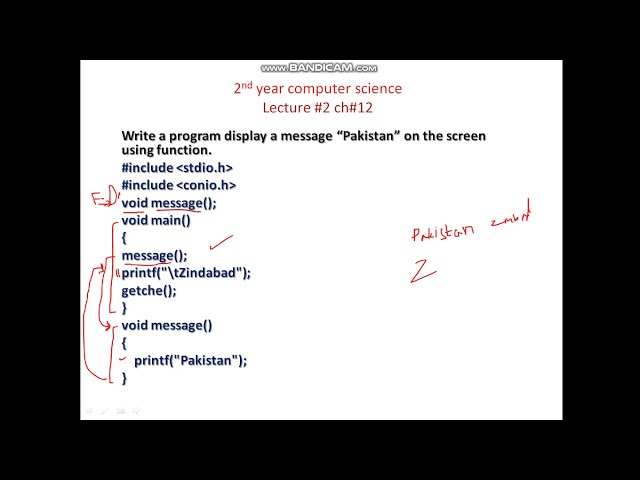 www.BANDICAM.com
2nd year computer science
Lecture #2 ch#12
Write a program display a message “Pakistan” on the screen
using function.
#include <stdio.h>
#include <conio.h>
void message();
void main()
{
message();
printf("\tZindabad");
getche();
}
void message()
{
printf("Pakistan");
}
Pakistan
Z